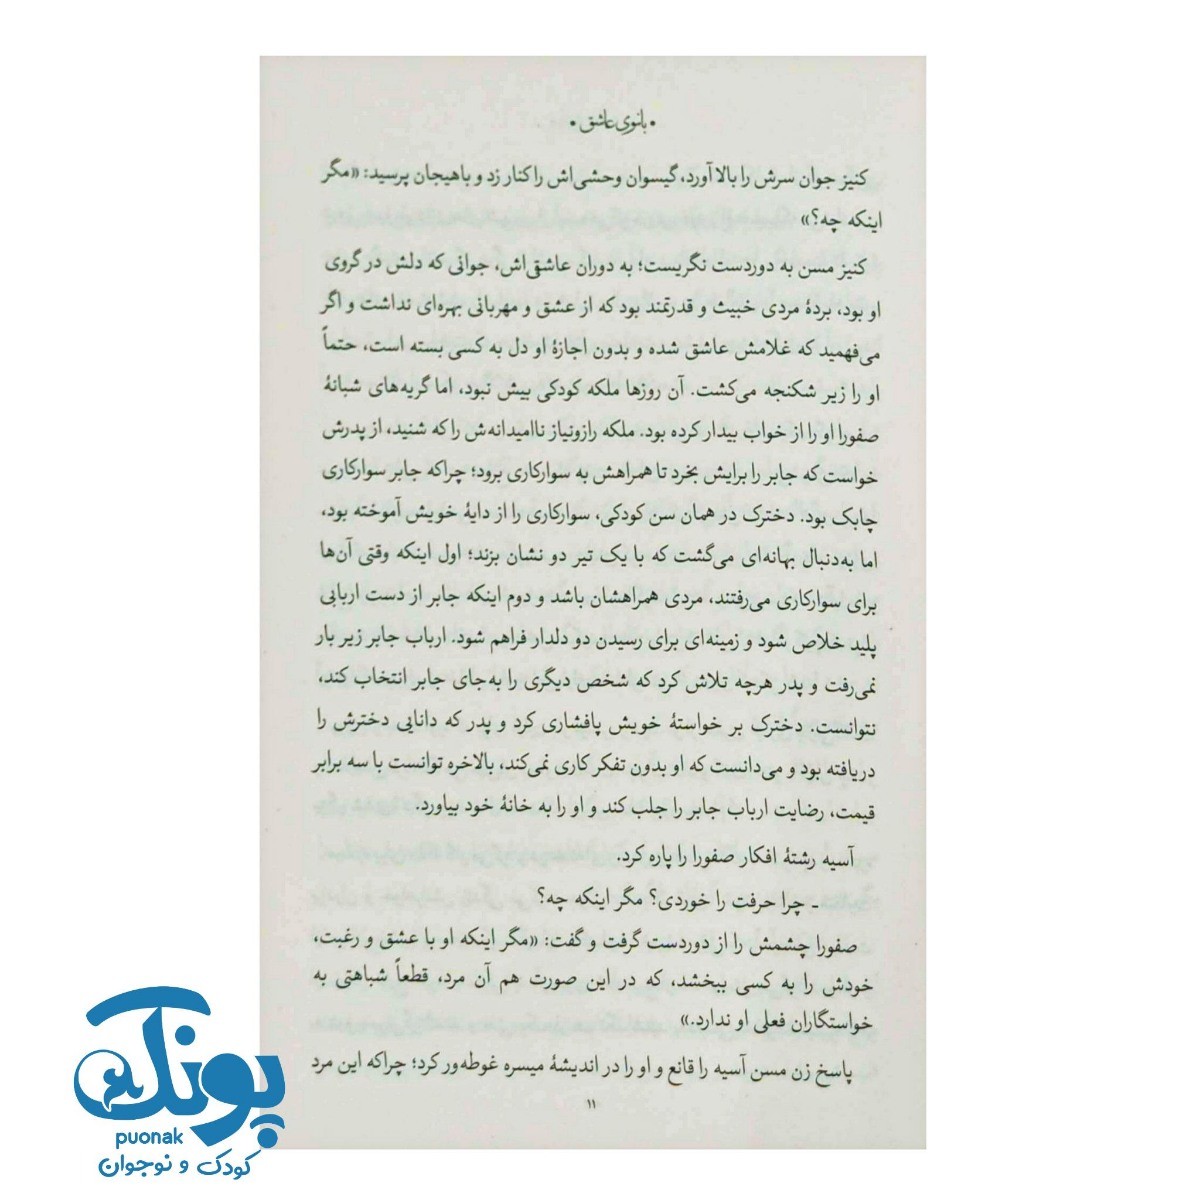 • بانوی عاشق •
کنیز جوان سرش را بالا آورد، گیسوان وحشی‌اش را کنار زد و باهیجان پرسید: «مگر
اینکه چه؟»
کنیز مسن به دوردست نگریست؛ به دوران عاشقی‌اش، جوانی که دلش در گروی
او بود، بردهٔ مردی خبیث و قدرتمند بود که از عشق و مهربانی بهره‌ای نداشت و اگر
می‌فهمید که غلامش عاشق شده و بدون اجازهٔ او دل به کسی بسته است، حتماً
او را زیر شکنجه می‌کشت. آن روزها ملکه کودکی بیش نبود، اما گریه‌های شبانهٔ
صفورا او را از خواب بیدار کرده بود. ملکه رازونیاز ناامیدانه‌ش را که شنید، از پدرش
خواست که جابر را برایش بخرد تا همراهش به سوارکاری برود؛ چراکه جابر سوارکاری
چابک بود. دخترک در همان سن کودکی، سوارکاری را از دایهٔ خویش آموخته بود،
اما به‌دنبال بهانه‌ای می‌گشت که با یک تیر دو نشان بزند؛ اول اینکه وقتی آن‌ها
برای سوارکاری می‌رفتند، مردی همراهشان باشد و دوم اینکه جابر از دست اربابی
پلید خلاص شود و زمینه‌ای برای رسیدن دو دلدار فراهم شود. ارباب جابر زیر بار
نمی‌رفت و پدر هرچه تلاش کرد که شخص دیگری را به‌جای جابر انتخاب کند،
نتوانست. دخترک بر خواستهٔ خویش پافشاری کرد و پدر که دانایی دخترش را
دریافته بود و می‌دانست که او بدون تفکر کاری نمی‌کند، بالاخره توانست با سه برابر
قیمت، رضایت ارباب جابر را جلب کند و او را به خانهٔ خود بیاورد.
آسیه رشتهٔ افکار صفورا را پاره کرد.
ـ چرا حرفت را خوردی؟ مگر اینکه چه؟
صفورا چشمش را از دوردست گرفت و گفت: «مگر اینکه او با عشق و رغبت،
خودش را به کسی ببخشد، که در این صورت هم آن مرد، قطعاً شباهتی به
خواستگاران فعلی او ندارد.»
پاسخ زن مسن آسیه را قانع و او را در اندیشهٔ میسره غوطه‌ور کرد؛ چراکه این مرد
۱۱
پونک
puonak
کودک و نوجوان